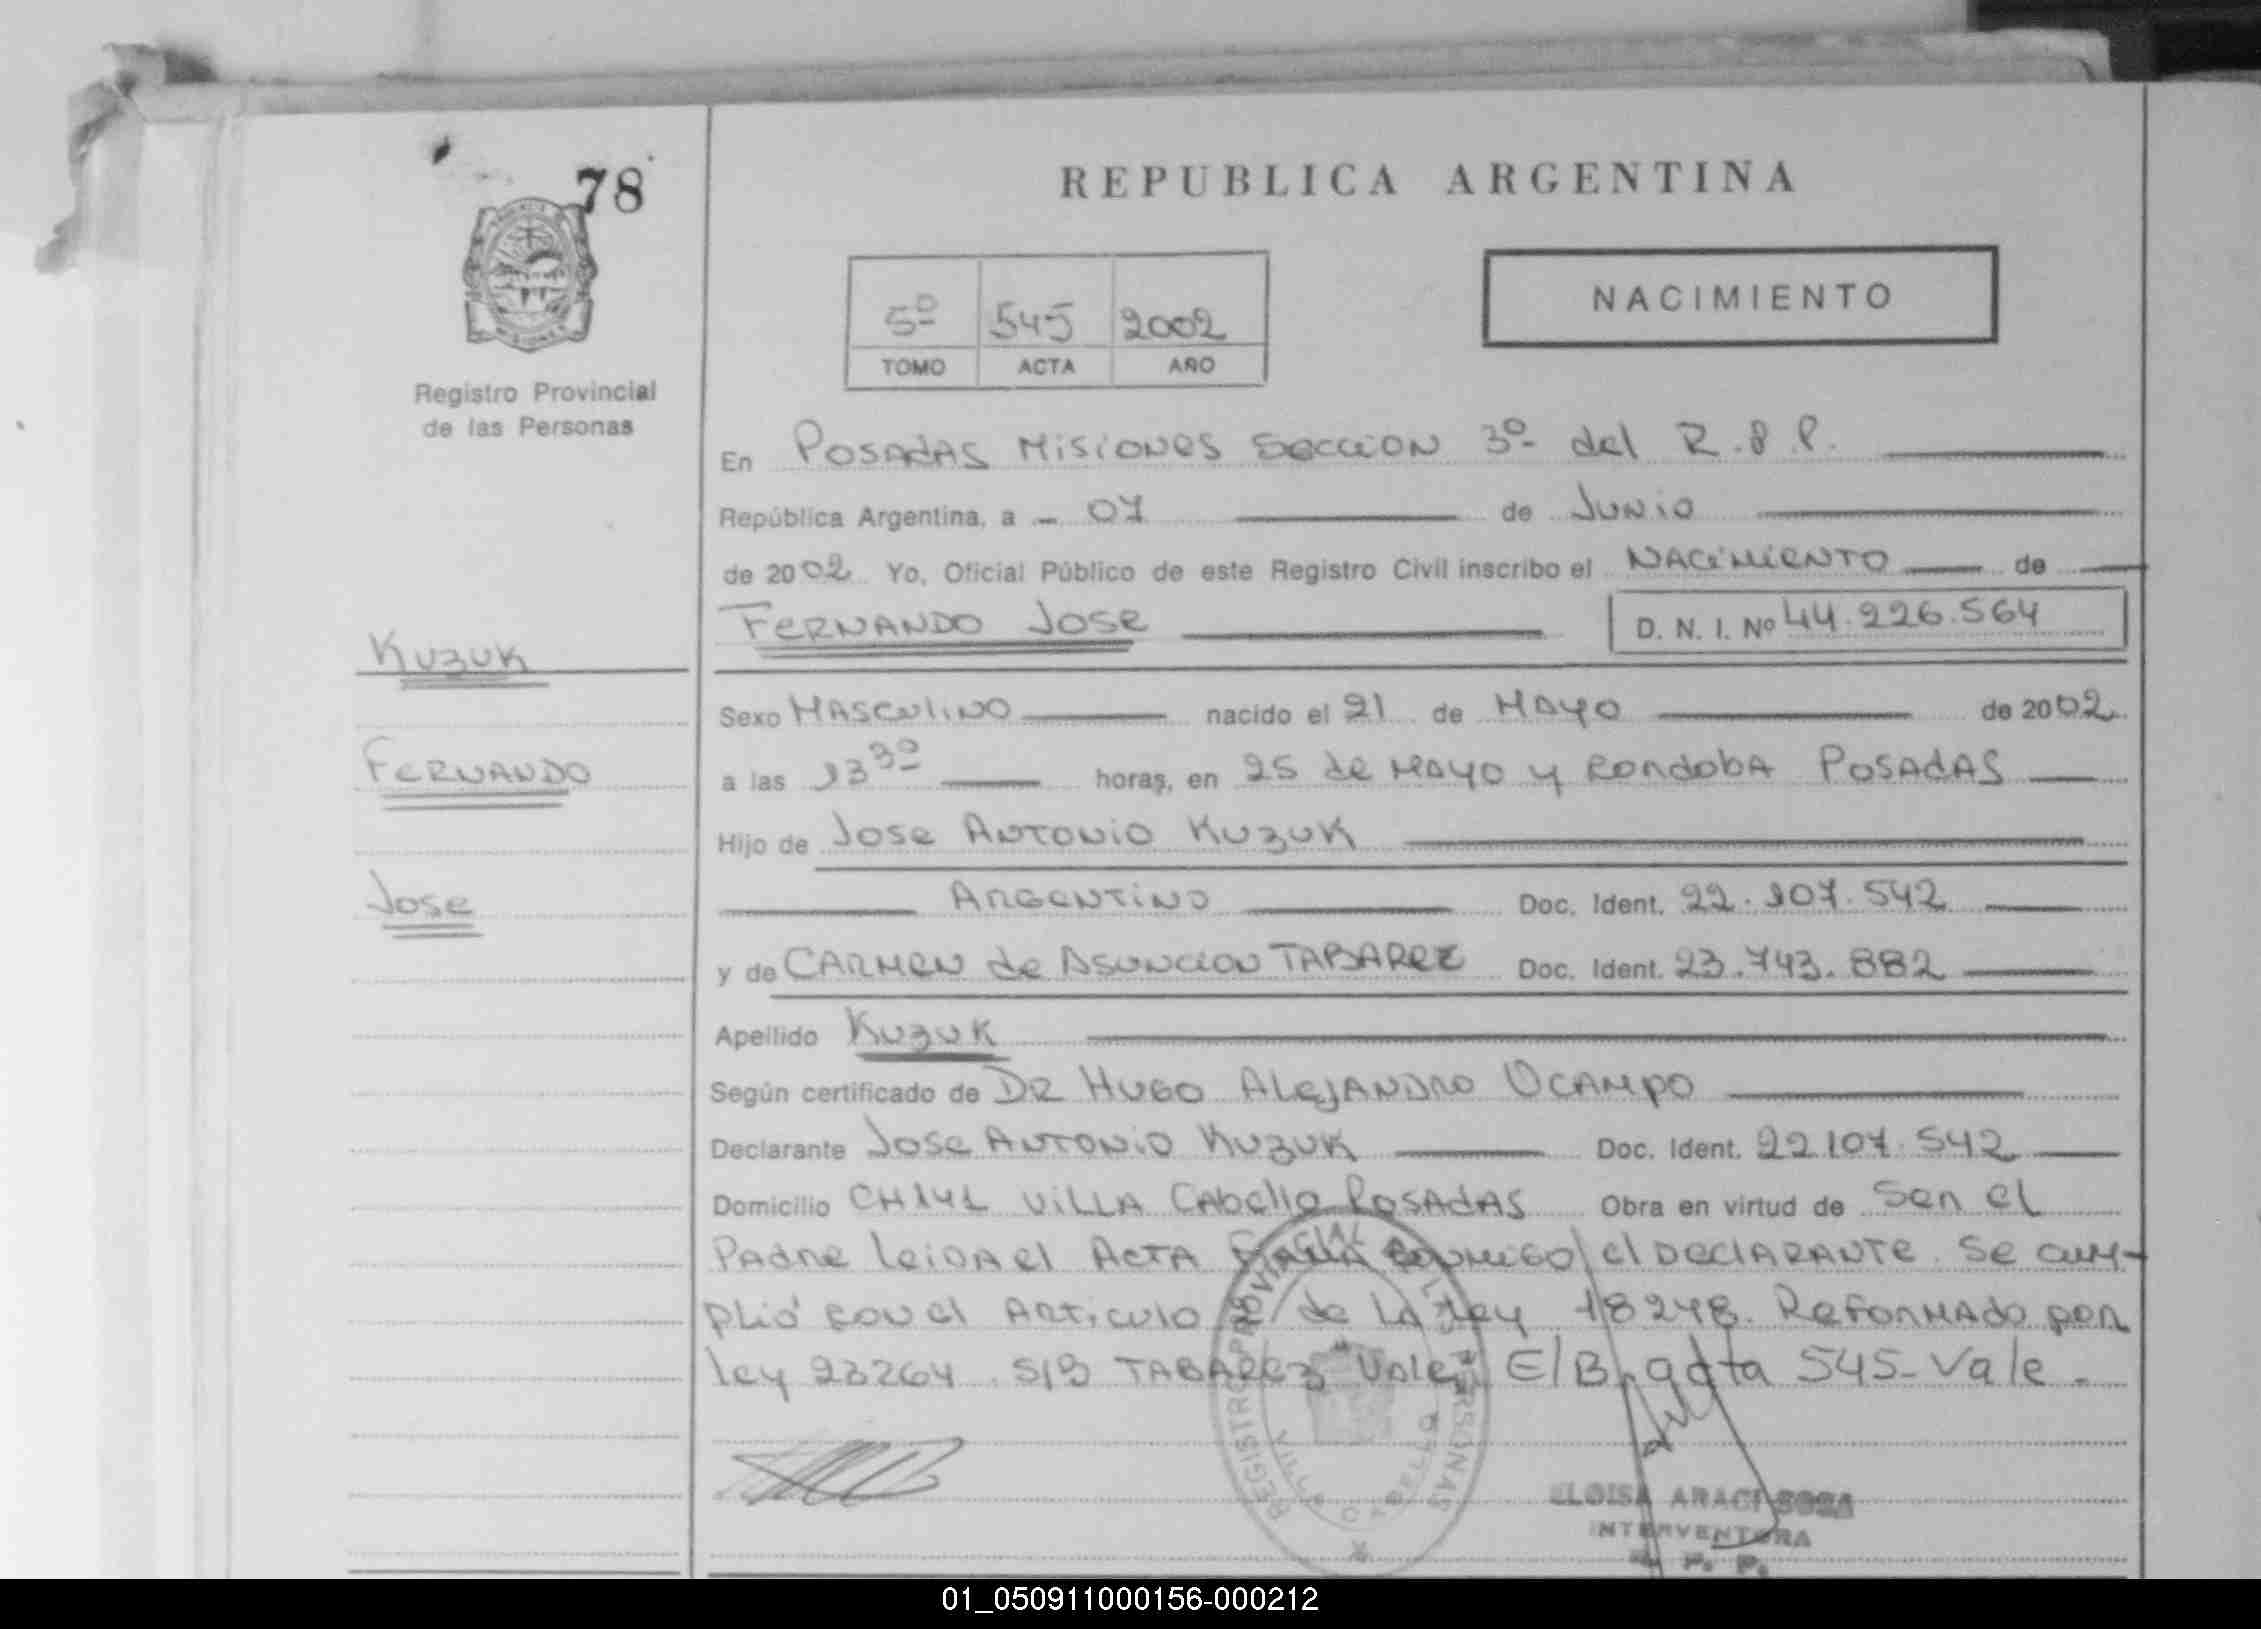 78
REPUBLICA ARGENTINA
NACIMIENTO
5º 545 2002
TOMO ACTA AÑO
Registro Provincial
de las Personas
En POSADAS MISIONES SECCION 3º del R.P.P.
República Argentina, a 07 de JUNIO
de 2002 Yo, Oficial Público de este Registro Civil inscribo el NACIMIENTO de
FERNANDO JOSE D. N. I. Nº 44.226.564
KUZUK
Sexo MASCULINO nacido el 21 de MAYO de 2002
FERNANDO
a las 13 30 horas, en 25 de MAYO y RONDOBA POSADAS
Hijo de JOSE ANTONIO KUZUK
JOSE
ARGENTINO Doc. Ident. 22.107.542
y de CARMEN de ASUNCION TABAREZ Doc. Ident. 23.743.882
Apellido KUZUK
Según certificado de DR HUGO ALEJANDRO OCAMPO
Declarante JOSE ANTONIO KUZUK Doc. Ident. 22107.542
Domicilio CH141 VILLA CABELLO POSADAS Obra en virtud de Ser el
PADRE leida el ACTA FIRMA CONMIGO el DECLARANTE. Se cum-
plió con el ARTICULO de LA ley 18248. REFORMADO por
ley 23264. S/B TABAREZ "VALE" E/B acta 545-Vale.
REGISTRO PROVINCIAL DE LAS PERSONAS
VILLA CABELLO
ELOISA ARACI SOSA
INTERVENTORA
R. P. P.
01_050911000156-000212